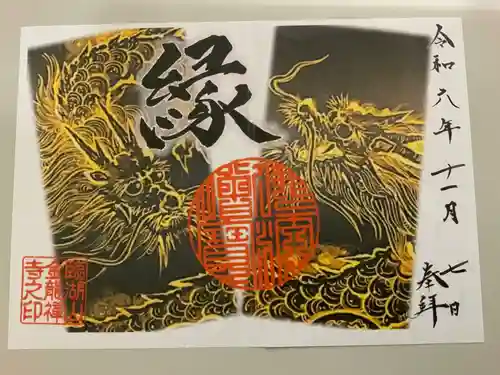 令和六年十一月
七日
奉拝
縁
臨湖山
金龍禅
寺之印